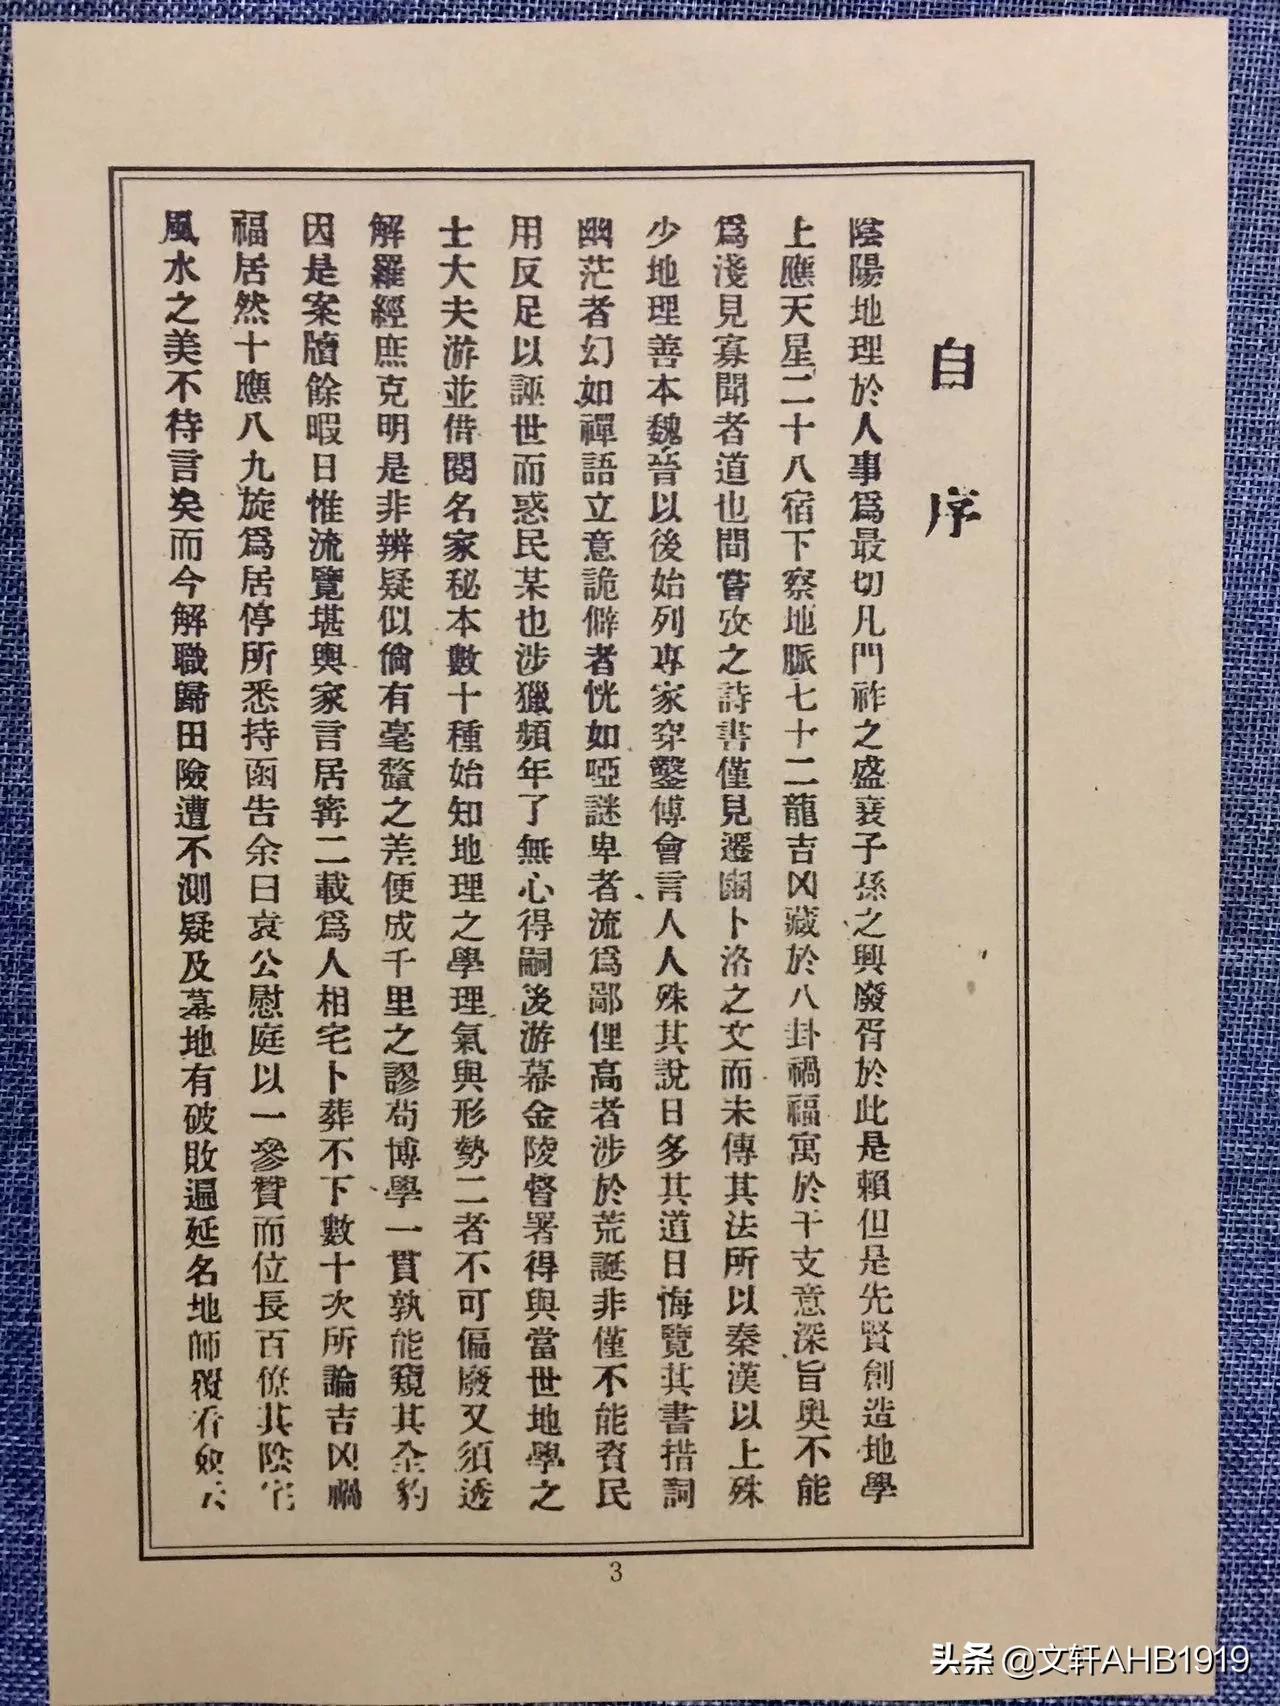 自序
陰陽地理於人事爲最切凡門祚之盛衰子孫之興廢胥於此是賴但是先賢創造地學
上應天星二十八宿下察地脈七十二龍吉凶藏於八卦禍福寓於干支意深旨奧不能
爲淺見寡聞者道也間嘗攷之詩書僅見遷豳卜洛之文而未傳其法所以秦漢以上殊
少地理善本魏晉以後始列專家穿鑿傅會言人人殊其說日多其道日悔覽其書措詞
幽茫者幻如禪語立意詭僻者恍如啞謎卑者流爲鄙俚高者涉於荒誕非僅不能資民
用反足以誣世而惑民某也涉獵頻年了無心得嗣後游幕金陵督署得與當世地學之
士大夫游並借閱名家秘本數十種始知地理之學理氣與形勢二者不可偏廢又須透
解羅經庶克明是非辨疑似倘有毫釐之差便成千里之謬苟博學一貫孰能窺其全豹
因是案牘餘暇日惟流覽堪輿家言居寗二載爲人相宅卜葬不下數十次所論吉凶禍
福居然十應八九旋爲居停所悉持函告余曰袁公慰庭以一參贊而位長百僚其陰宅
風水之美不待言矣而今解職歸田險遭不測疑及墓地有破敗遍延名地師覆看僉云
3
头条 @文轩AHB1919